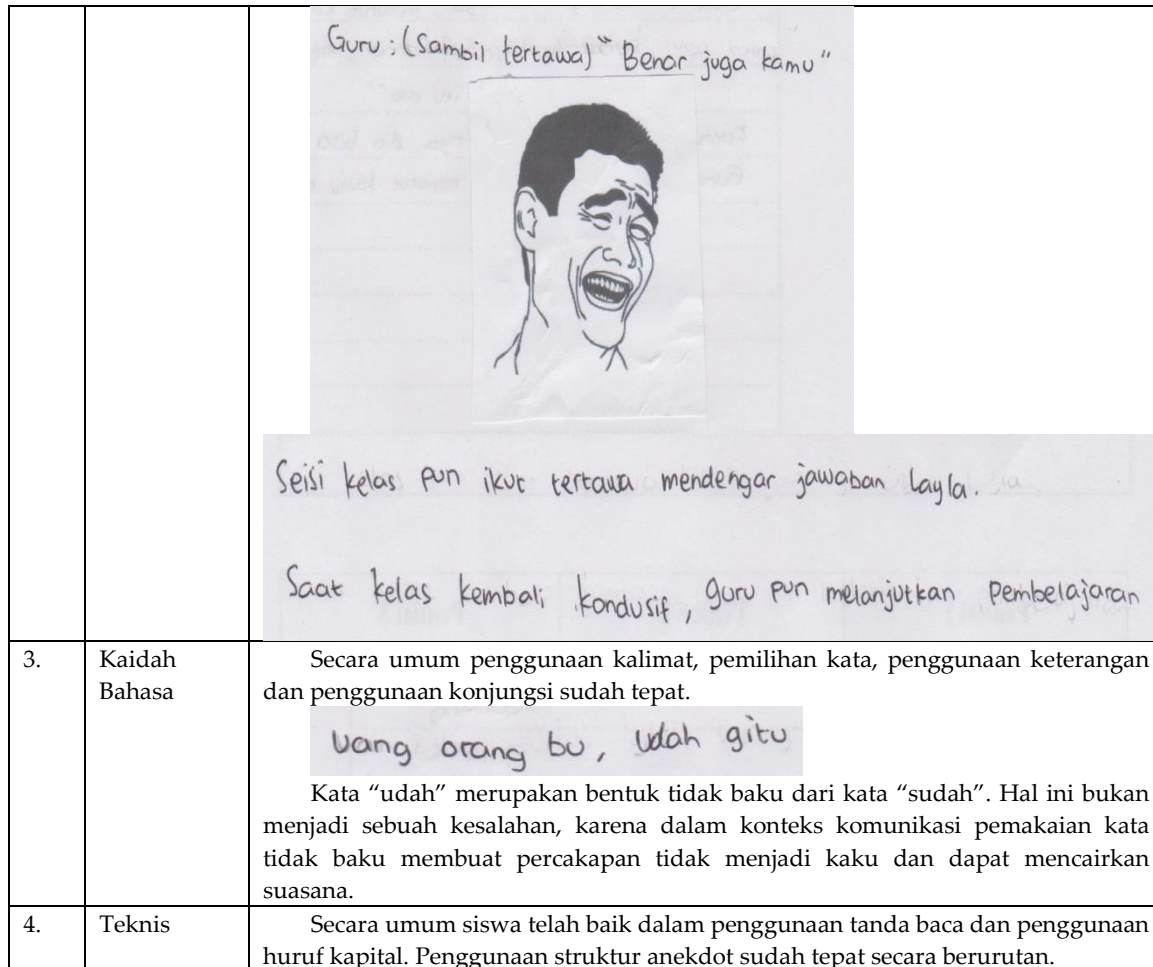 Guru : (Sambil tertawa) "Benar juga kamu"
Seisi kelas pun ikut tertawa mendengar jawaban Layla.
Saat kelas kembali kondusif, guru pun melanjutkan pembelajaran
3.
Kaidah
Bahasa
Secara umum penggunaan kalimat, pemilihan kata, penggunaan keterangan
dan penggunaan konjungsi sudah tepat.
Uang orang bu, udah gitu
Kata “udah” merupakan bentuk tidak baku dari kata “sudah”. Hal ini bukan
menjadi sebuah kesalahan, karena dalam konteks komunikasi pemakaian kata
tidak baku membuat percakapan tidak menjadi kaku dan dapat mencairkan
suasana.
4.
Teknis
Secara umum siswa telah baik dalam penggunaan tanda baca dan penggunaan
huruf kapital. Penggunaan struktur anekdot sudah tepat secara berurutan.